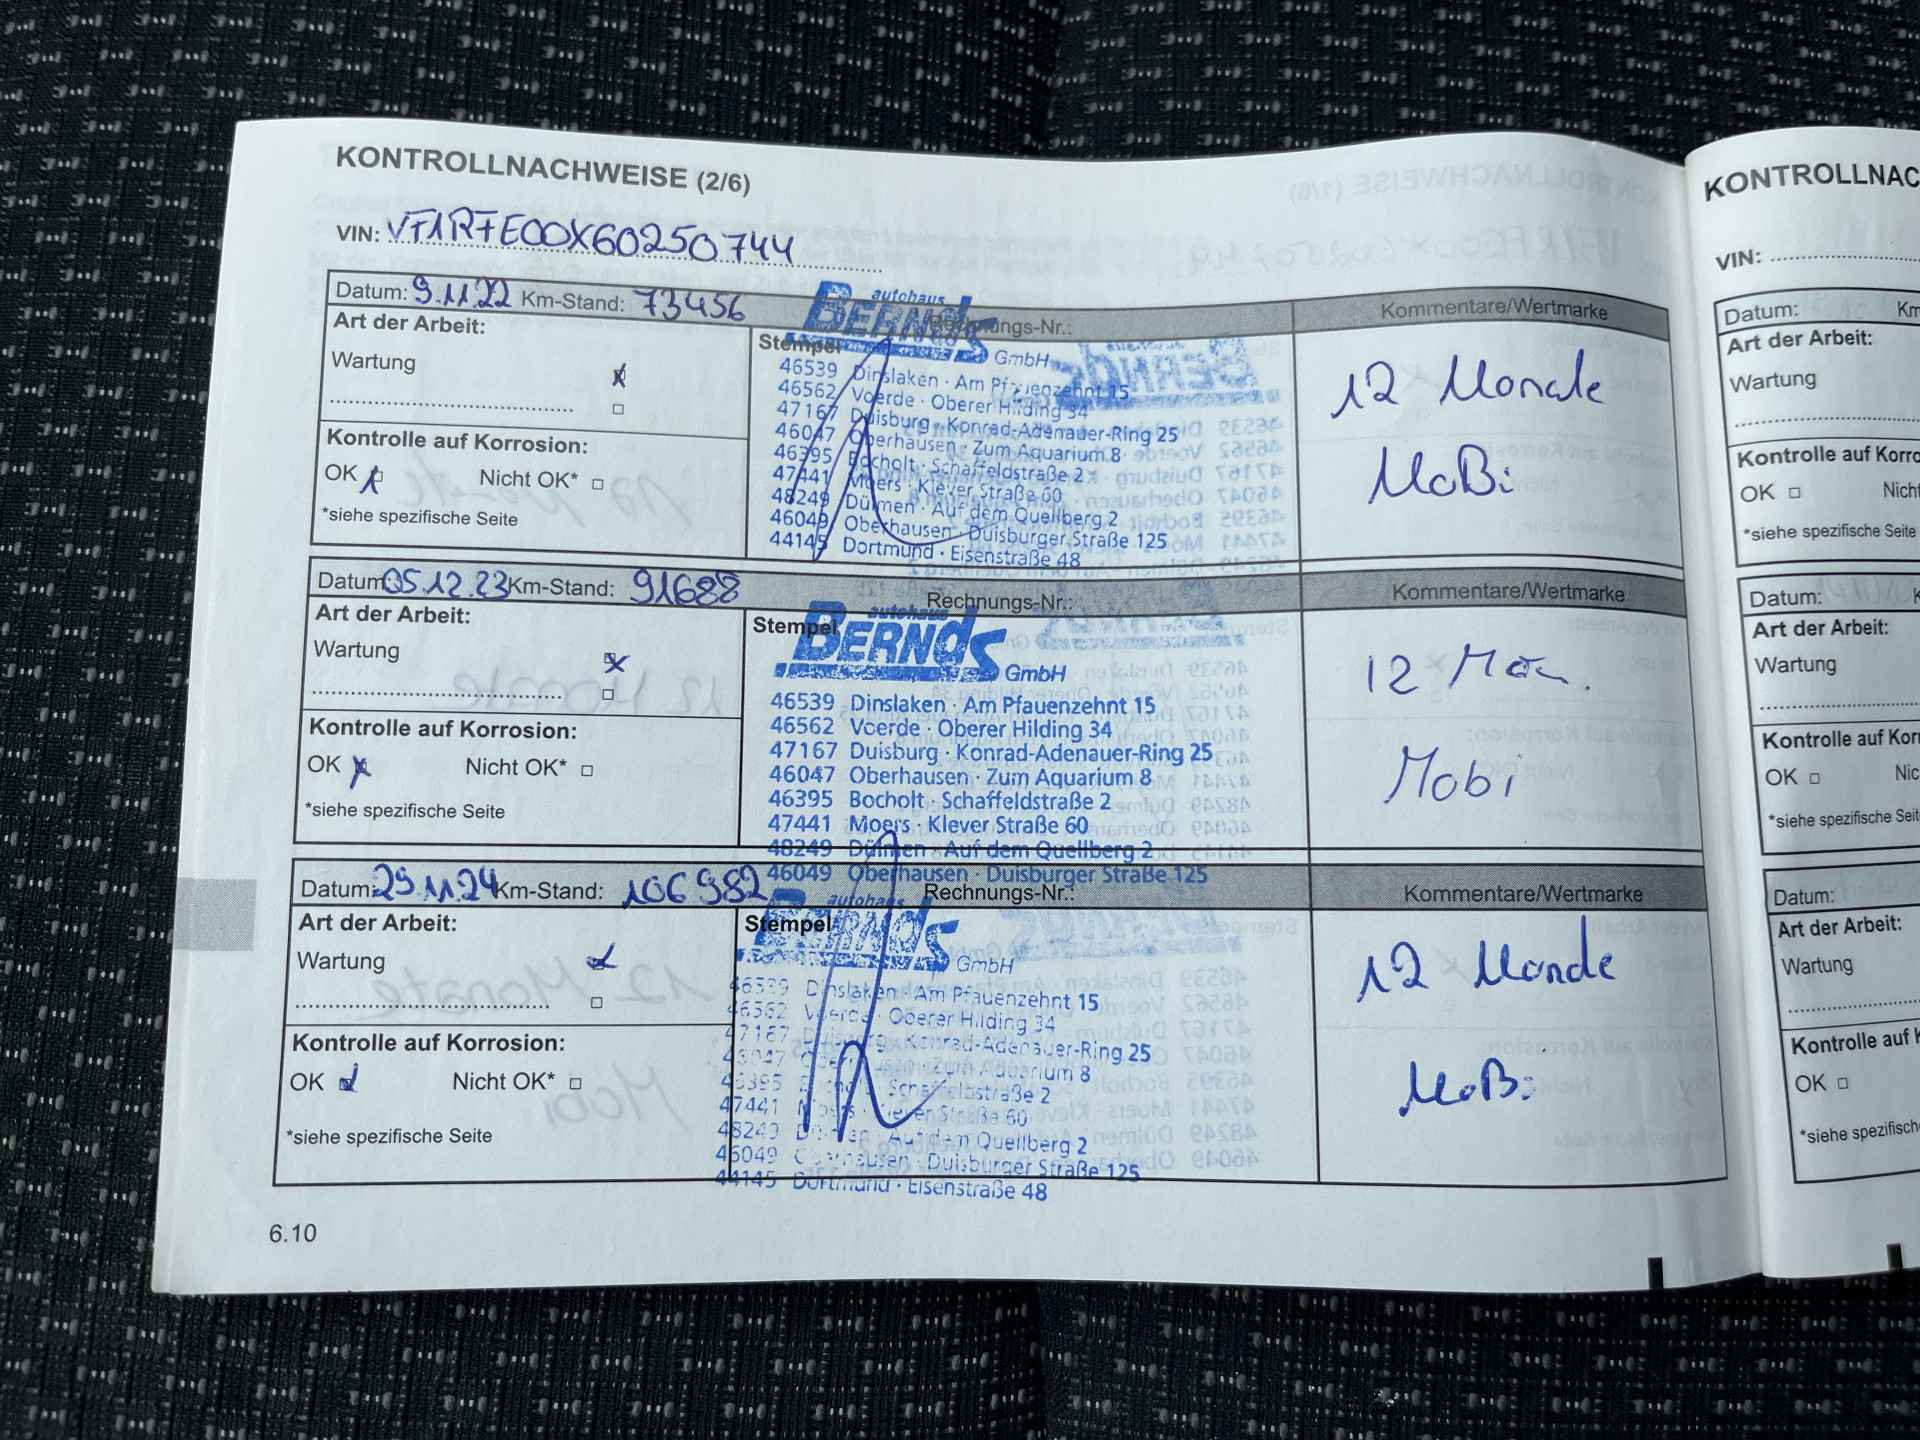 KONTROLLNACHWEISE (2/6)
VIN: VF1RFE00X60250744
Datum: 9.11.22 Km-Stand: 73456 Rechnungs-Nr.: Kommentare/Wertmarke
Art der Arbeit:
Wartung
Kontrolle auf Korrosion:
OK Nicht OK*
*siehe spezifische Seite
Stempel
autohaus
BERNDS
GmbH
46539 Dinslaken · Am Pfauenzehnt 15
46562 Voerde · Oberer Hilding 34
47167 Duisburg · Konrad-Adenauer-Ring 25
46047 Oberhausen · Zum Aquarium 8
46395 Bocholt · Schaffeldstraße 2
47441 Moers · Klever Straße 60
48249 Dülmen · Auf dem Quellberg 2
46049 Oberhausen · Duisburger Straße 125
44145 Dortmund · Eisenstraße 48
12 Monate
MoBi
Datum: 05.12.23 Km-Stand: 91688 Rechnungs-Nr.: Kommentare/Wertmarke
Art der Arbeit:
Wartung
Kontrolle auf Korrosion:
OK Nicht OK*
*siehe spezifische Seite
Stempel
autohaus
BERNDS
GmbH
46539 Dinslaken · Am Pfauenzehnt 15
46562 Voerde · Oberer Hilding 34
47167 Duisburg · Konrad-Adenauer-Ring 25
46047 Oberhausen · Zum Aquarium 8
46395 Bocholt · Schaffeldstraße 2
47441 Moers · Klever Straße 60
48249 Dülmen · Auf dem Quellberg 2
46049 Oberhausen · Duisburger Straße 125
12 Mon.
Mobi
Datum: 29.11.24 Km-Stand: 106982 Rechnungs-Nr.: Kommentare/Wertmarke
Art der Arbeit:
Wartung
Kontrolle auf Korrosion:
OK Nicht OK*
*siehe spezifische Seite
Stempel
autohaus
BERNDS
GmbH
46539 Dinslaken · Am Pfauenzehnt 15
46562 Voerde · Oberer Hilding 34
47167 Duisburg · Konrad-Adenauer-Ring 25
46047 Zum Aquarium 8
46395 Schaffeldstraße 2
47441 Moers · Klever Straße 60
48249 Dülmen · Auf dem Quellberg 2
46049 Oberhausen · Duisburger Straße 125
44145 Dortmund · Eisenstraße 48
12 Monate
MoBi
6.10
KONTROLLNAC
VIN:
Datum: Km
Art der Arbeit:
Wartung
Kontrolle auf Korro
OK Nicht
*siehe spezifische Seite
Datum: K
Art der Arbeit:
Wartung
Kontrolle auf Korr
OK Nic
*siehe spezifische Seit
Datum:
Art der Arbeit:
Wartung
Kontrolle auf K
OK
*siehe spezifisch